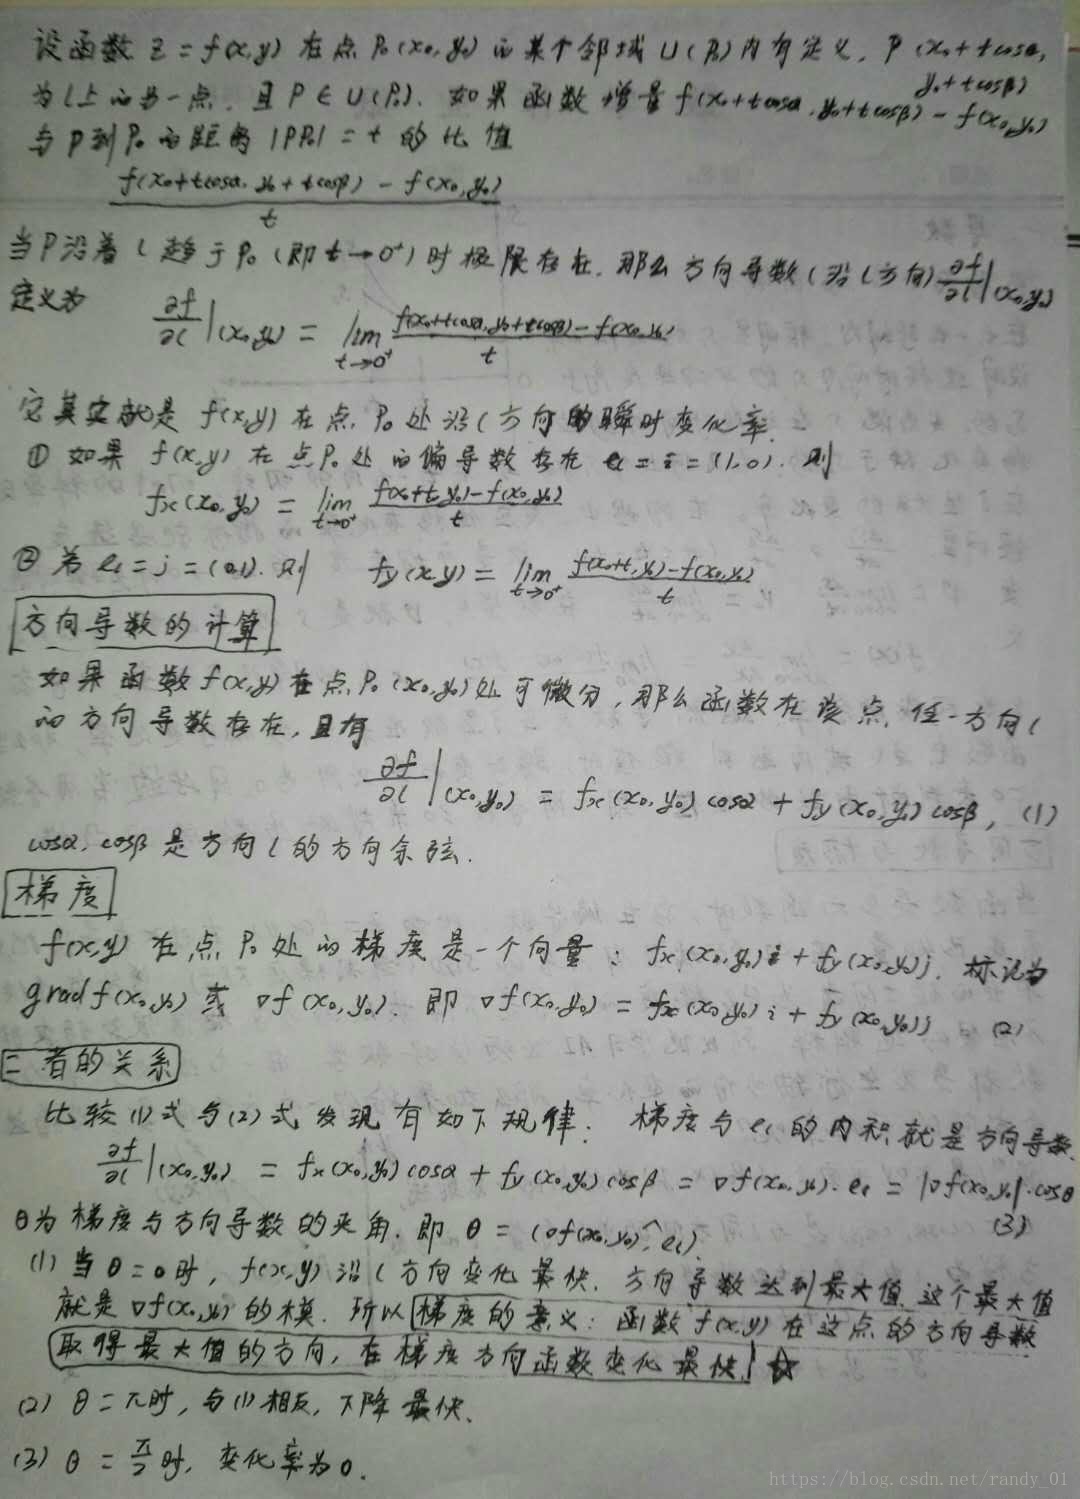 设函数 z = f(x,y) 在点 P₀(x₀,y₀) 的某个邻域 U(P₀)内有定义, P (x₀+tcosα,
y₀+tcosβ)
为l上的另一点, 且 P∈U(P₀). 如果函数增量 f(x₀+tcosα, y₀+tcosβ) - f(x₀,y₀)
与P到P₀的距离 |PP₀| = t 的比值
(f(x₀+tcosα, y₀+tcosβ) - f(x₀,y₀)) / t
当P沿着 l 趋于P₀ (即 t→0⁺)时极限存在, 那么方向导数(沿l方向) ∂f/∂l |(x₀,y₀)
定义为 ∂f/∂l |(x₀,y₀) = lim t→0⁺ (f(x₀+tcosα, y₀+tcosβ) - f(x₀,y₀)) / t
它其实就是 f(x,y) 在点P₀处沿l方向的瞬时变化率.
① 如果 f(x,y) 在点P₀处的偏导数存在 eₗ = i = (1,0). 则
fx(x₀,y₀) = lim t→0⁺ (f(x₀+t,y₀) - f(x₀,y₀)) / t
② 若 eₗ = j = (0,1). 则 fy(x,y) = lim t→0⁺ (f(x₀+t,y₀) - f(x₀,y₀)) / t
方向导数的计算
如果函数 f(x,y) 在点P₀(x₀,y₀)处可微分, 那么函数在该点, 任一方向l
的方向导数存在, 且有
∂f/∂l |(x₀,y₀) = fx(x₀,y₀) cosα + fy(x₀,y₀) cosβ, (1)
cosα, cosβ 是方向l的方向余弦.
梯度
f(x,y) 在点P₀处的梯度是一个向量: fx(x₀,y₀)i + fy(x₀,y₀)j. 标记为
grad f(x₀,y₀) 或 ∇f(x₀,y₀). 即 ∇f(x₀,y₀) = fx(x₀,y₀)i + fy(x₀,y₀)j (2)
二者的关系
比较(1)式与(2)式发现有如下规律: 梯度与eₗ的内积就是方向导数.
∂f/∂l |(x₀,y₀) = fx(x₀,y₀)cosα + fy(x₀,y₀)cosβ = ∇f(x₀,y₀)·eₗ = |∇f(x₀,y₀)|·cosθ
(3)
θ为梯度与方向导数的夹角. 即 θ = (∇f(x₀,y₀)^eₗ).
(1) 当θ=0时, f(x,y)沿l方向变化最快. 方向导数达到最大值. 这个最大值
就是∇f(x₀,y₀)的模. 所以 梯度的意义: 函数f(x,y)在这点的方向导数
取得最大值的方向, 在梯度方向函数变化最快! ☆
(2) θ=π时, 与(1)相反, 下降最快.
(3) θ = π/2 时, 变化率为0.
https://blog.csdn.net/randy_01